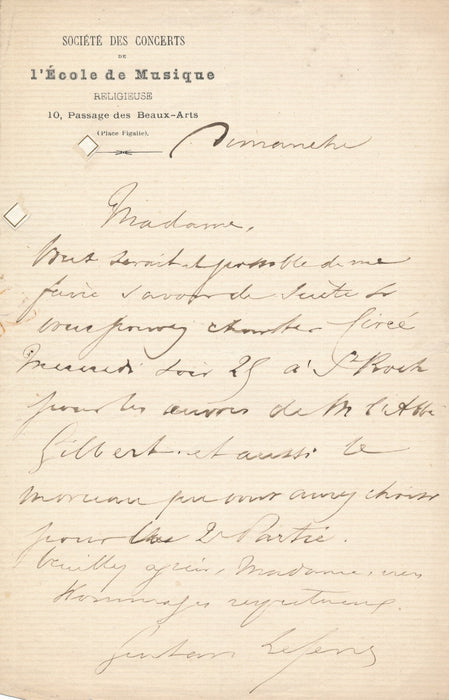 SOCIÉTÉ DES CONCERTS
DE
l'École de Musique
RELIGIEUSE
10, Passage des Beaux-Arts
(Place Pigalle).
Dimanche
Madame,
Vous serait-il possible de me
faire savoir de suite si
vous pouvez chanter Circé
Mercredi soir 25 à St Roch
pour les œuvres de M l'Abbé
Gilbert. et aussi le
morceau que vous aurez choisi
pour la 2e Partie.
Veuillez agréer, Madame, mes
hommages respectueux.
Gustave Lefèvre